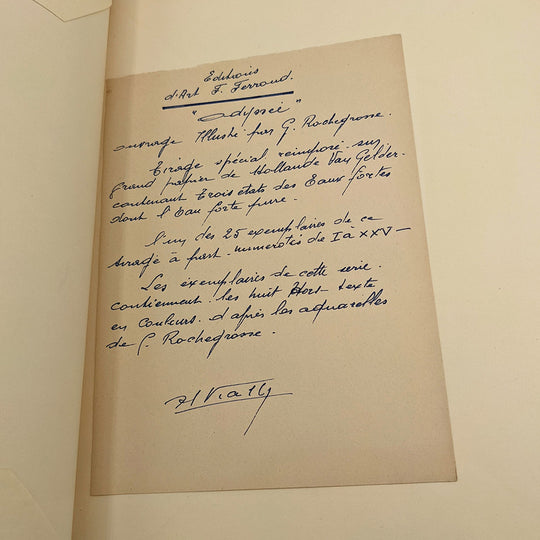 Editions
d'Art F. Ferroud.
"Odyssée"
ouvrage Illustré par G. Rochegrosse.
Tirage spécial réimposé sur
Grand papier de Hollande Van Gelder.
contenant trois états des Eaux fortes
dont l'Eau forte pure.
l'un des 25 exemplaires de ce
tirage à part. numérotés de I à XXV-
Les exemplaires de cette serie.
contiennent les huit Hors-texte
en couleurs. d'après les aquarelles
de G. Rochegrosse.